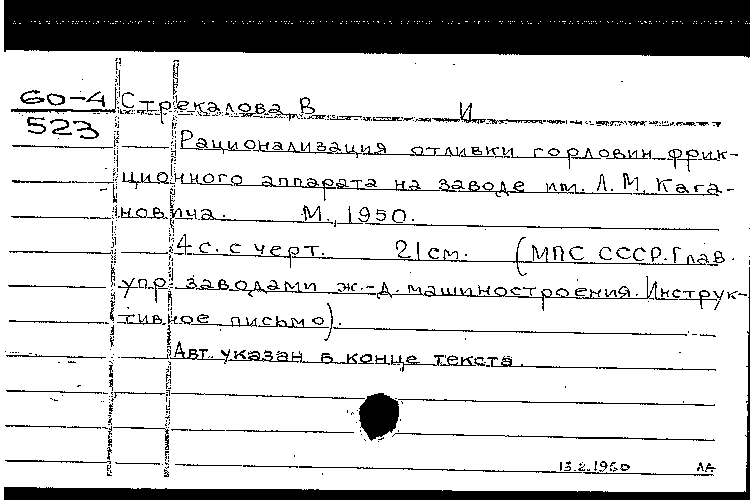 60-4 Стрекалова, В И
523
Рационализация отливки горловин фрик-
ционного аппарата на заводе им. Л.М. Кага-
новича. М., 1950.
4 с. с черт. 21 см. (МПС СССР. Глав.
упр. заводами ж.-д. машиностроения. Инструк-
тивное письмо).
Авт. указан в конце текста.
13.2.1960 ЛА